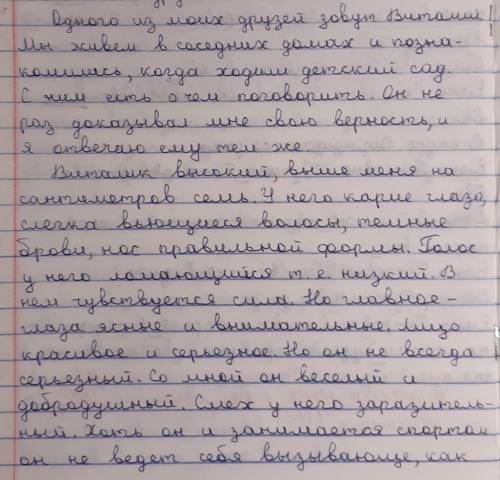 Одного из моих друзей зовут Виталий.
Мы живем в соседних домах и позна-
комились, когда ходили детский сад.
С ним есть о чем поговорить. Он не
раз доказывал мне свою верность, и
я отвечаю ему тем же.
Виталик высокий, выше меня на
сантиметров семь. У него карие глаза,
слегка вьющиеся волосы, темные
брови, нос правильной формы. Голос
у него ломающийся т. е. низкий. В
нем чувствуется сила. Но главное -
глаза ясные и внимательные. Лицо
красивое и серьезное. Но он не всегда
серьезный. Со мной он веселый и
добродушный. Смех у него заразитель-
ный. Хоть он и занимается спортом
он не ведет себя вызывающе, как